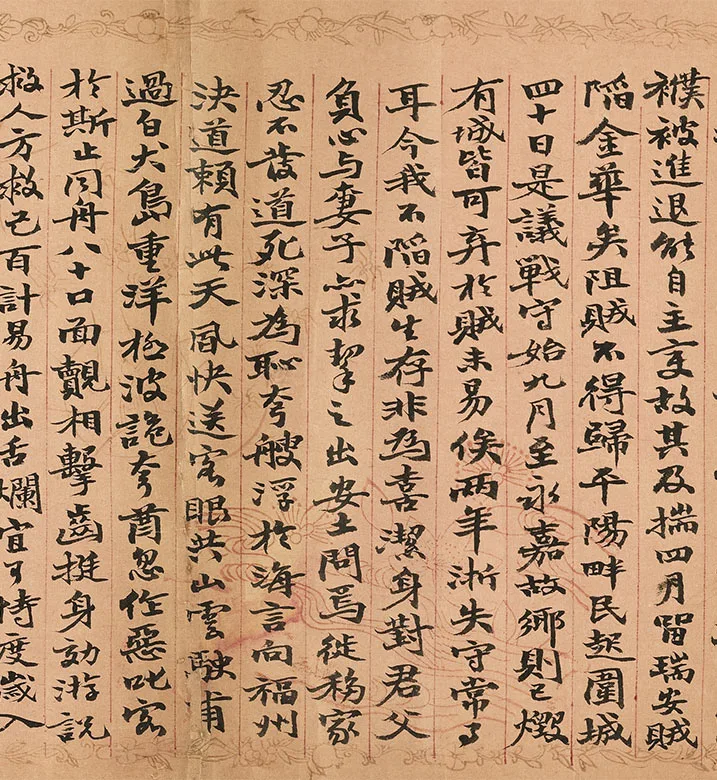 襆被進退能自主変故其及揣四月留瑞安賊
陷金華矣阻賊不得歸平陽畔民起圍城
四十日是議戰守始九月至永嘉故鄉則已燬
有城皆可弃於賊未易俟兩年浙失守常事
耳今我不陷賊生存非為喜潔身對君父
負心与妻子亦求挈之出安土問焉徙移家
忍不發道死深為恥夸艘浮於海言向福州
決道賴有此天風快送客眼共山雲駛甫
過白犬島重洋極波詭夸酋忽作惡叱客
於斯止同舟八十口面覿相擊齒挺身効游說
救人方救己百計易舟出舌爛宜可恃度歲入